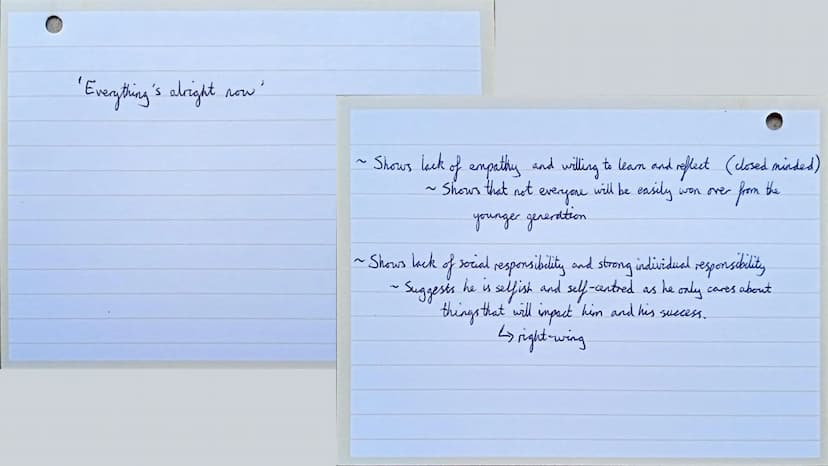 'Everything's alright now'
~ Shows lack of empathy and willing to learn and reflect (closed minded)
~ Shows that not everyone will be easily won over from the
younger generation
~ Shows lack of social responsibility and strong individual responsibility
~ Suggests he is selfish and self-centred as he only cares about
things that will impact him and his success.
↳ right-wing